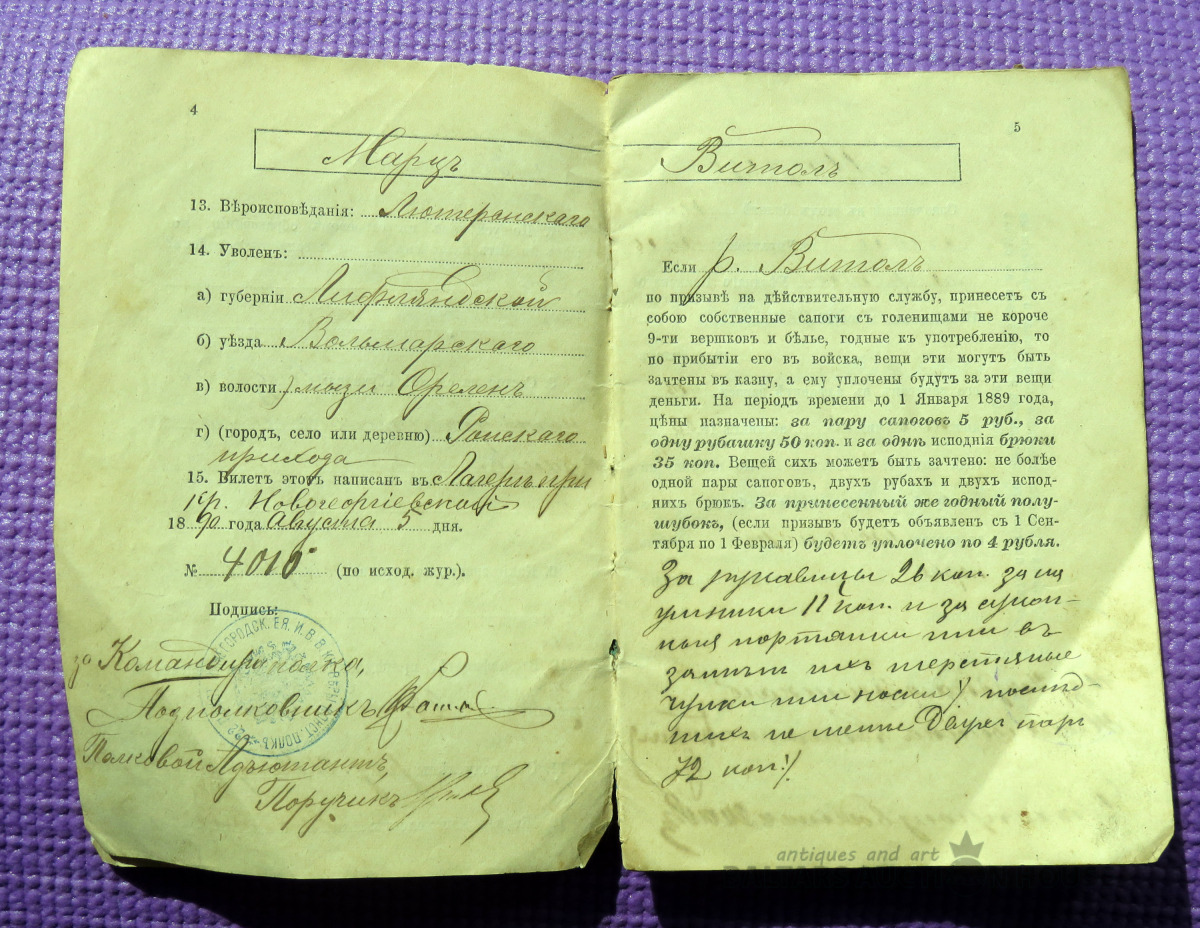 4
Марцъ
13. Вѣроисповѣданія: Лютеранскаго
14. Уволенъ:
а) губерніи Лифляндской
б) уѣзда Вольмарскаго
в) волости) мызы Ореленъ
г) (городъ, село или деревню) Роискаго
прихода
15. Билетъ этотъ написанъ въ Лагерѣ при
кр. Новогеоргіевской
1890 года Августа 5 дня.
№ 4010 (по исход. жур.).
Подпись:
за Командира полка,
Подполковникъ
Полковой Адъютантъ,
Поручикъ
5
Витолъ
Если р. Витолъ
по призывѣ на дѣйствительную службу, принесетъ съ
собою собственные сапоги съ голенищами не короче
9-ти вершковъ и бѣлье, годные къ употребленію, то
по прибытіи его въ войска, вещи эти могутъ быть
зачтены въ казну, а ему уплочены будутъ за эти вещи
деньги. На періодъ времени до 1 Января 1889 года,
цѣны назначены: за пару сапоговъ 5 руб., за
одну рубашку 50 коп. и за однѣ исподнія брюки
35 коп. Вещей сихъ можетъ быть зачтено: не болѣе
одной пары сапоговъ, двухъ рубахъ и двухъ испод-
нихъ брюкъ. За принесенный же годный полу-
шубокъ, (если призывъ будетъ объявленъ съ 1 Сен-
тября по 1 Февраля) будетъ уплочено по 4 рубля.
За рукавицы 26 коп. за на
ушники 11 коп. и за сукон-
ныя портянки или въ
замѣнъ ихъ шерстяные
чулки или носки) послѣд-
нихъ не менѣе двухъ паръ
72 коп.
antiques and art